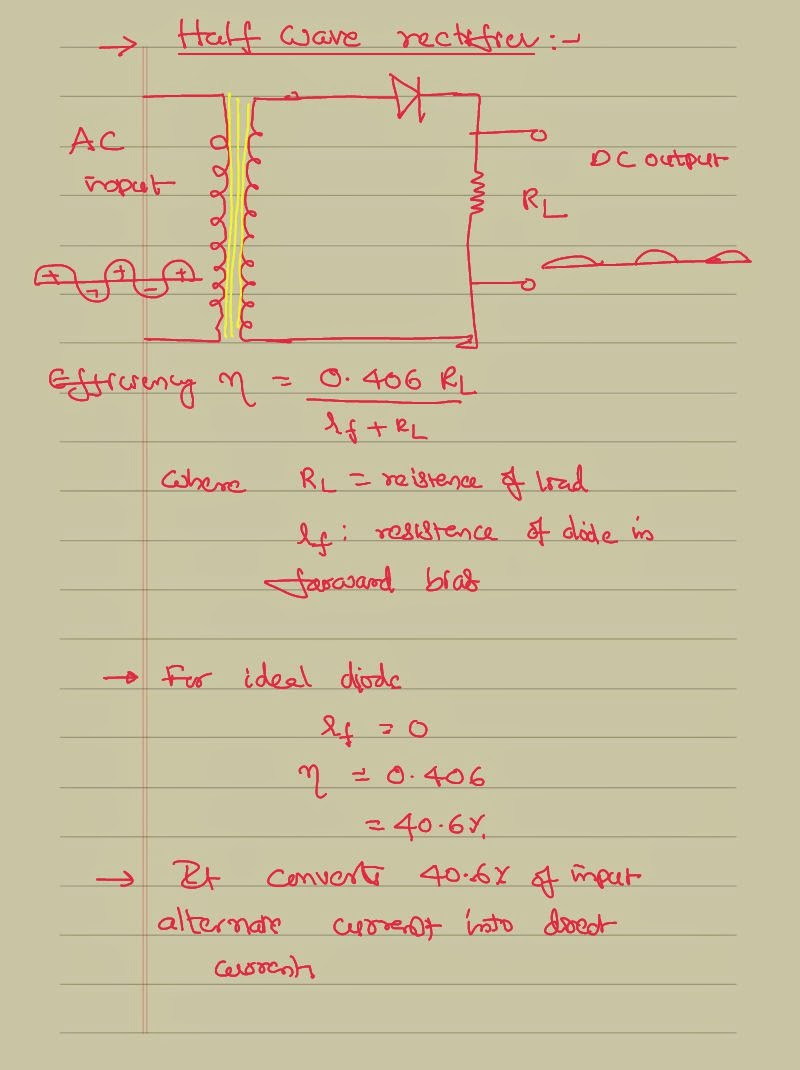 → Half wave rectifier :-
AC
input
DC output
R_L
+ - + - +
Efficiency η = 0.406 R_L
r_f + R_L
where R_L = reistence of load
r_f : resistence of diode in
forward bias
→ For ideal diode
r_f = 0
η = 0.406
= 40.6%
→ It converts 40.6% of input
alternate current into direct
current